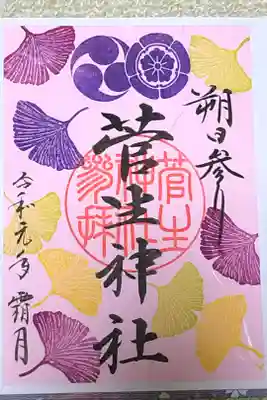 朔日参り
菅生神社
菅生神社参拝
令和元年 霜月